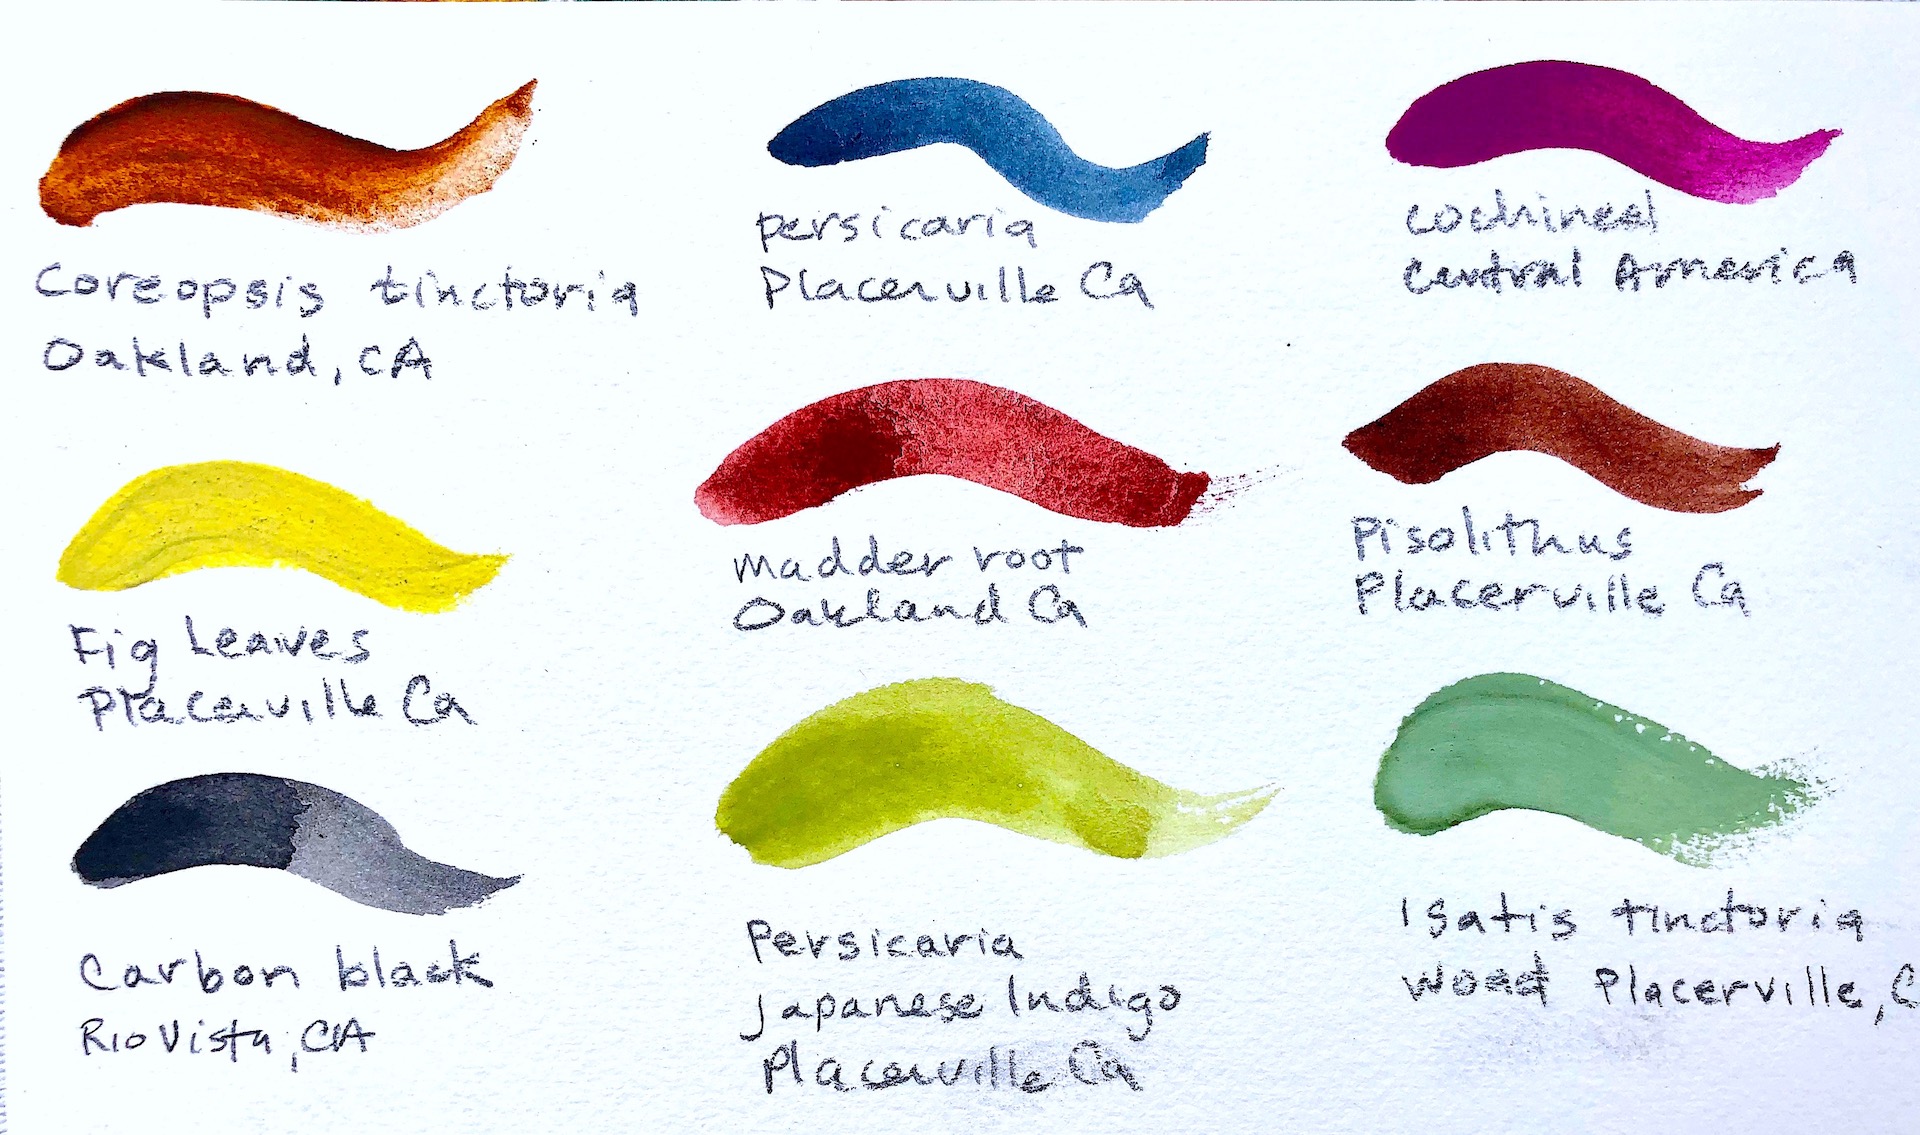 Coreopsis tinctoria
Oakland, CA
persicaria
Placerville Ca
cochineal
Central America
Fig Leaves
Placerville Ca
Madder root
Oakland Ca
Pisolithus
Placerville Ca
Carbon black
Rio Vista, CA
Persicaria
Japanese Indigo
Placerville Ca
Isatis tinctoria
woad Placerville, C